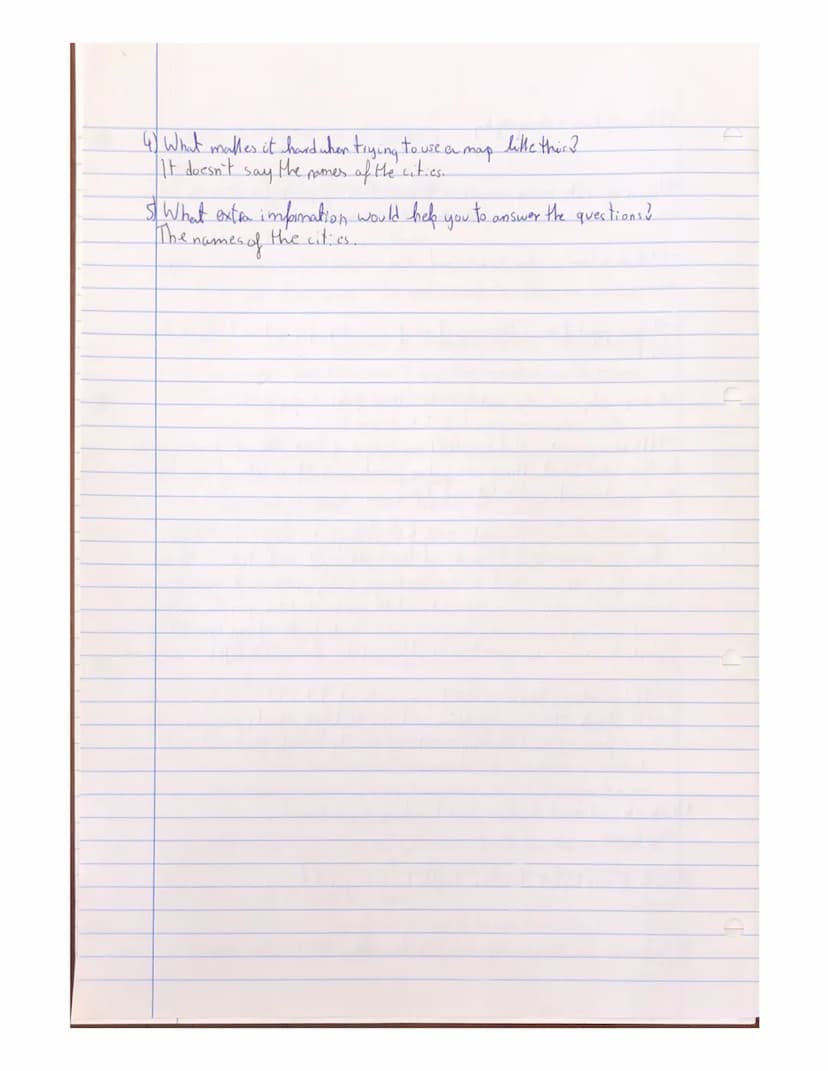 4) What makes it hard when trying to use a map like this?
It doesn't say the names of the cities.
5) What extra information would help you to answer the questions?
The names of the cities.